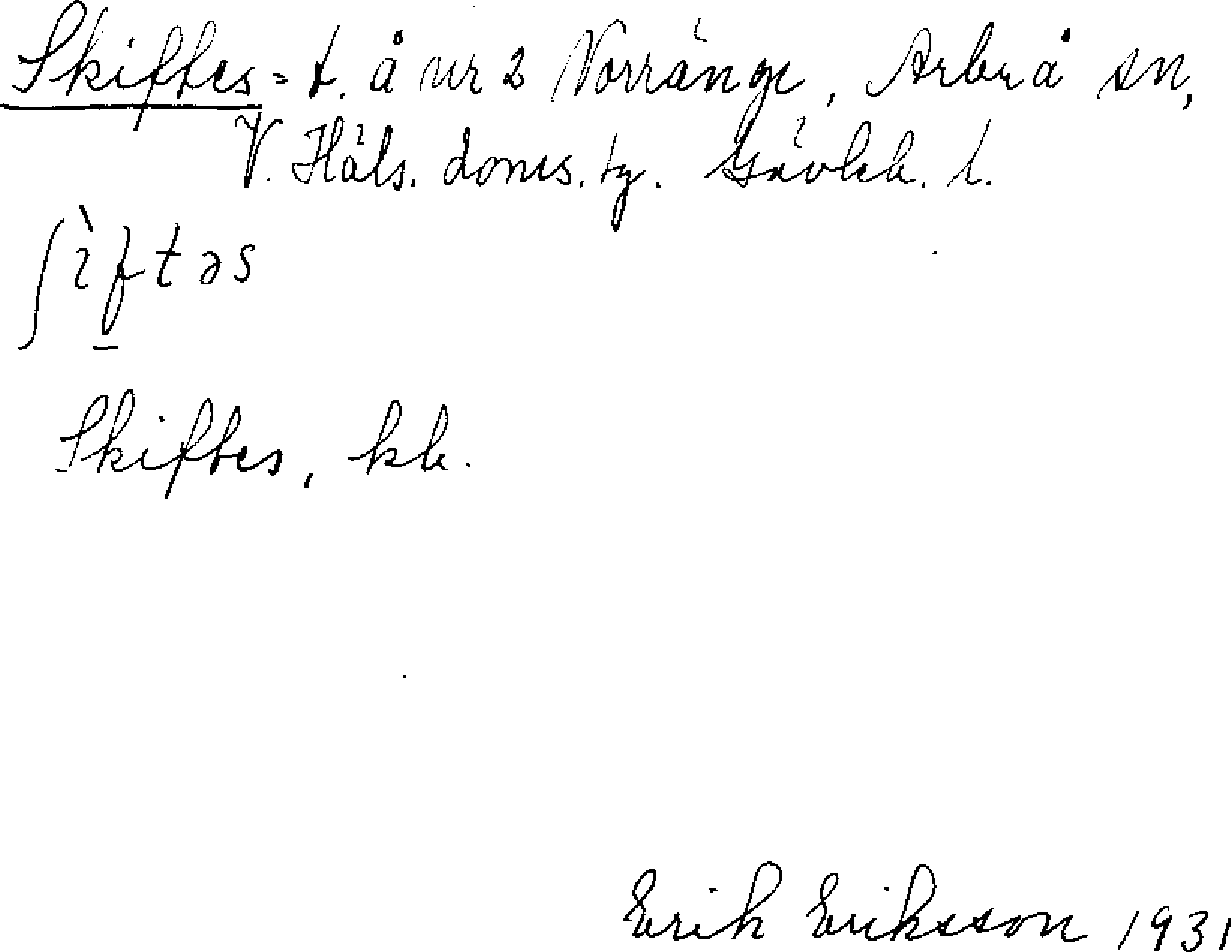 Skiftes = t. å nr 2 Norränge, Arbrå sn,
V. Häls. doms. tg. Gävleb. l.
ʃìftəs
Skiftes, kb.
Erik Eriksson 1931